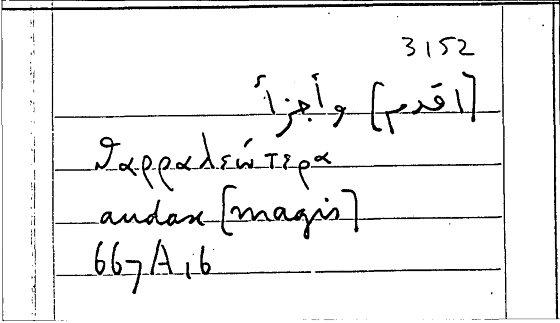 3152
[اقدم] وأجرأ
θαρραλεώτερα
audax [magis]
667A,6